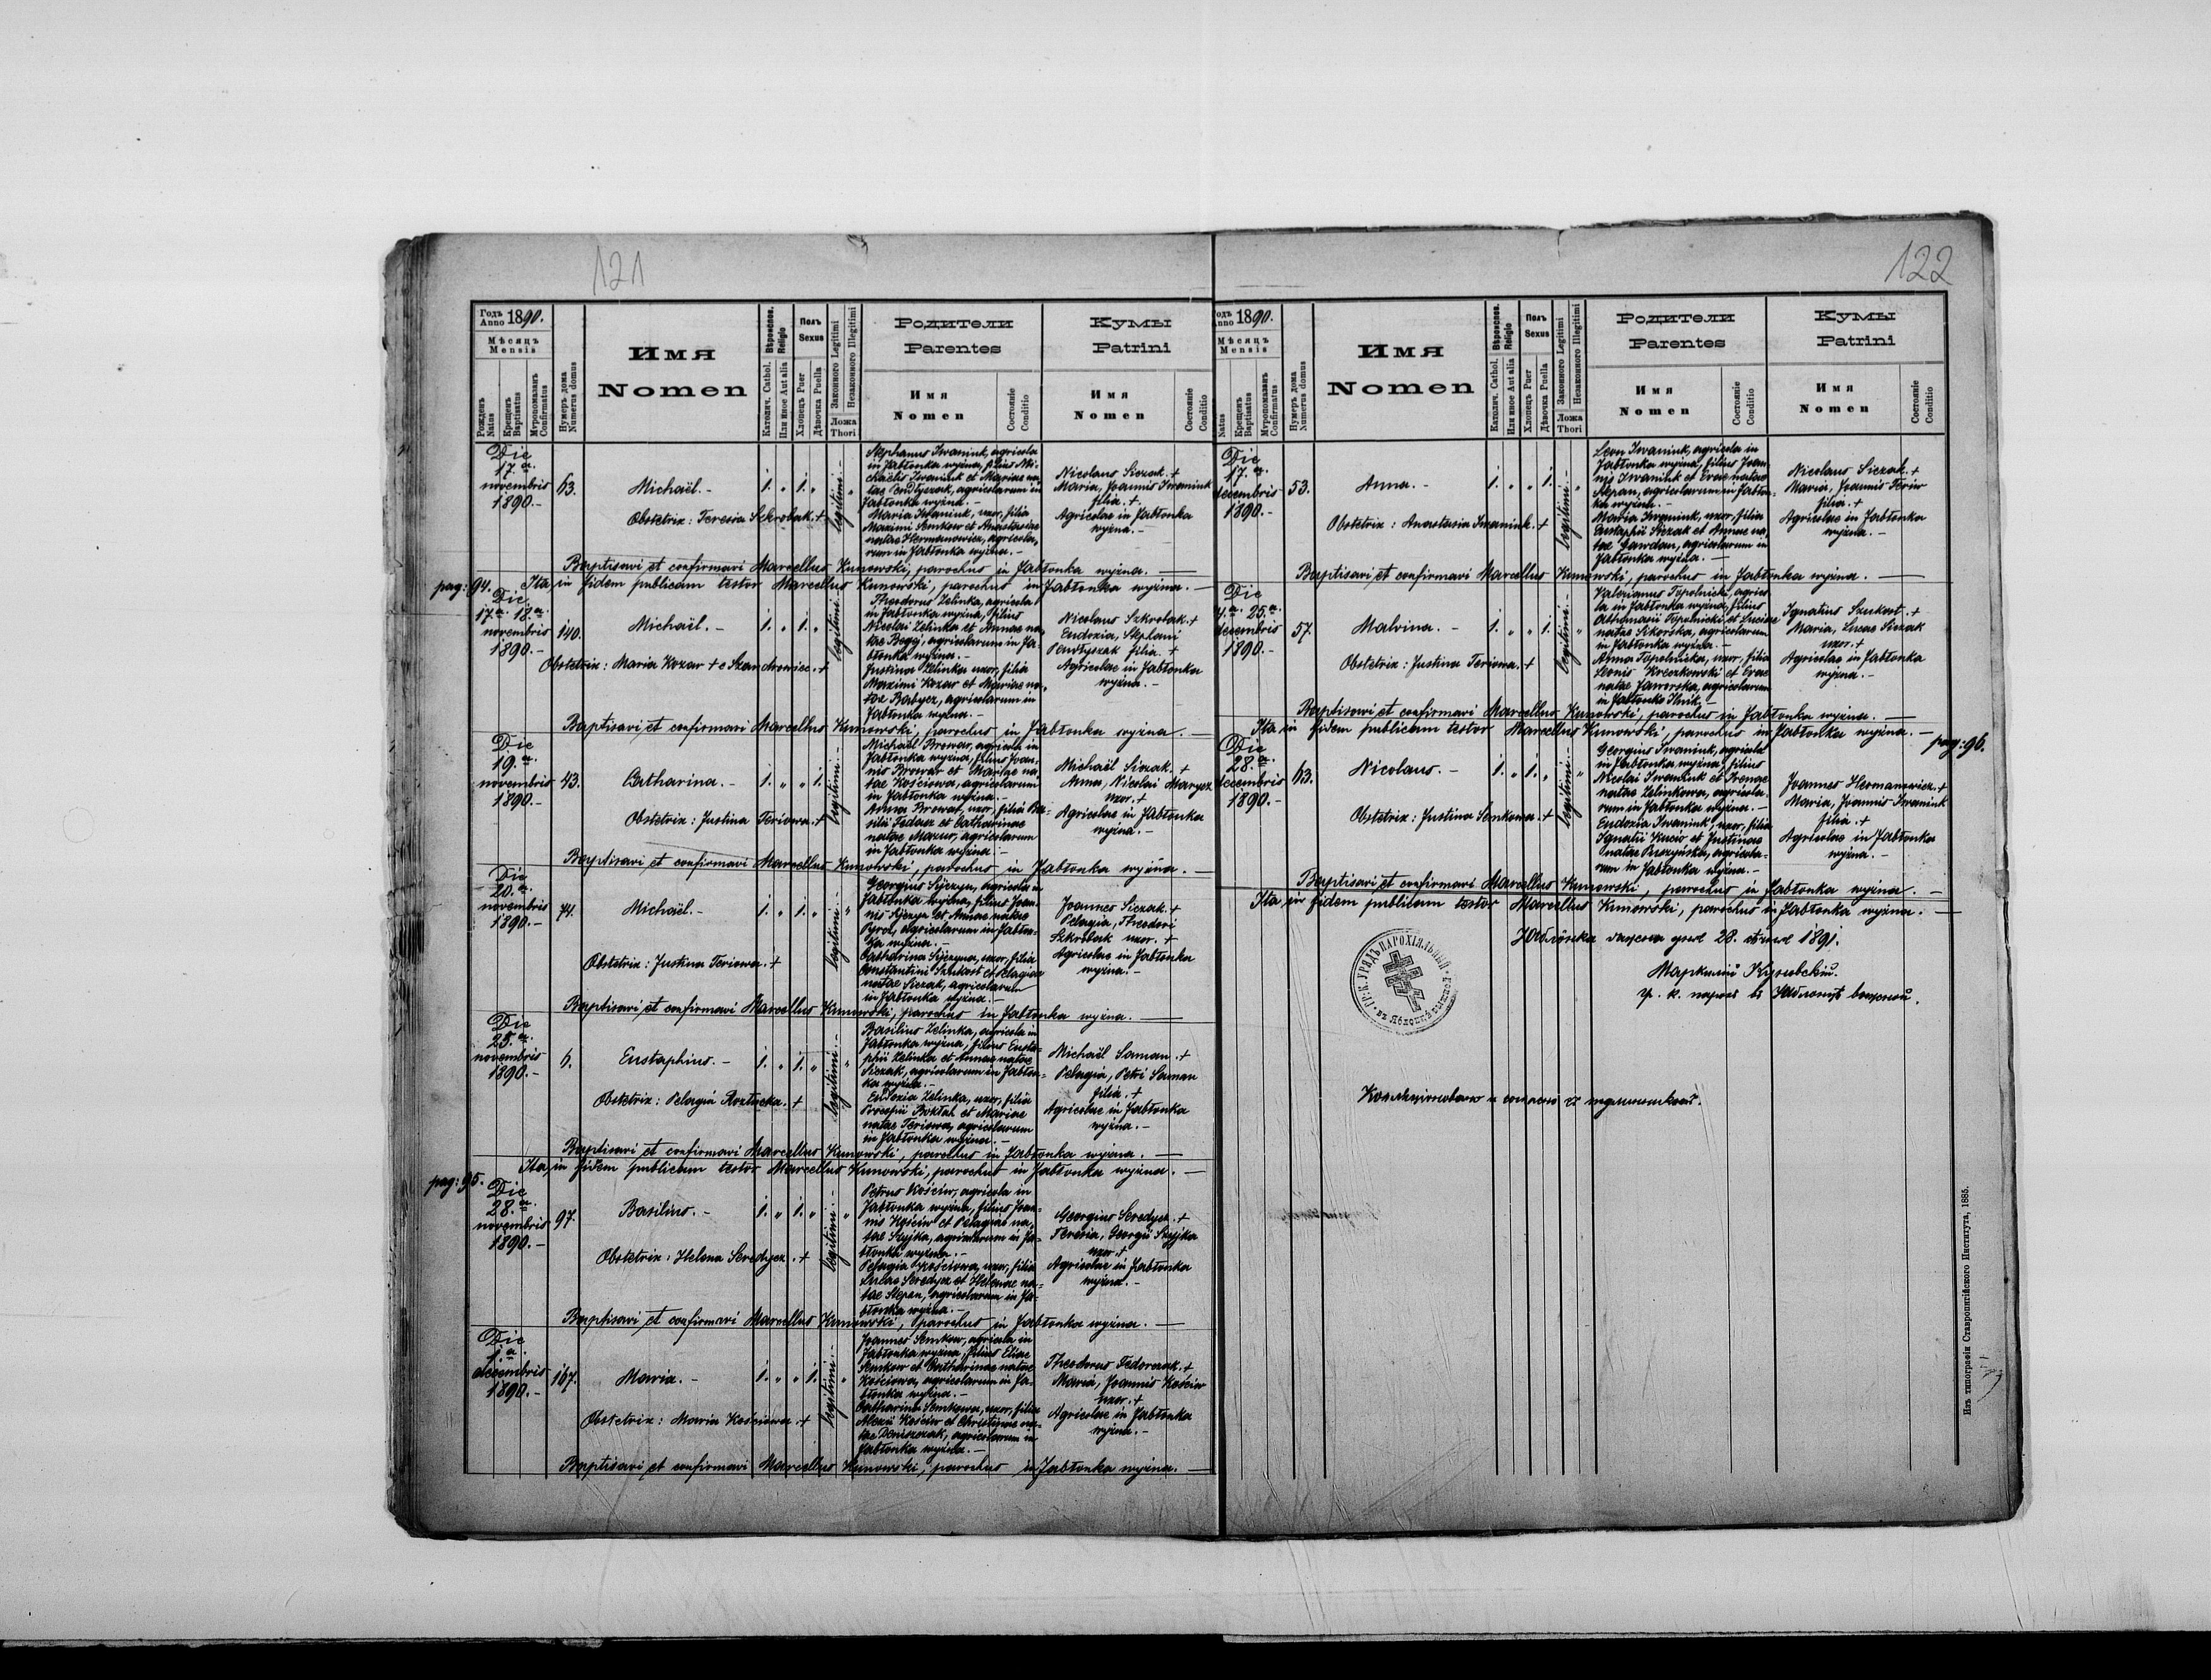 121
Годъ Anno 1890.
Мѣсяцъ
Mensis
Рожденъ Natus
Крещенъ Baptisatus
Мѵропомазанъ Confirmatus
Нумеръ дома Numerus domus
Имя
Nomen
Вѣроиспов. Religio
Католич. Cathol.
Или иное Aut alia
Полъ
Sexus
Хлопецъ Puer
Дѣвочка Puella
Законного Legitimi
Незаконного Illegitimi
Ложа
Thori
Родители
Parentes
Имя
Nomen
Состояніе
Conditio
Кумы
Patrini
Имя
Nomen
Состояніе
Conditio
Die
17.a
novembris
1890.-
63.
Michaël.-
1. „ 1. „
legitimi.-
Obstetrix: Teresia Szkrobak.+
Stephanus Iwaniuk, agricola
in Jabłonka wyżna, filius Mi-
chaëlis Iwaniuk et Mariae na-
tae Pendyszak, agricolarum in
Jabłonka wyżna.-
Maria Iwaniuk, uxor, filia
Maximi Semkow et Anastasiae
natae Hermanowicz, agricola-
rum in Jabłonka wyżna.-
Nicolaus Siczak.+
Maria, Joannis Iwaniuk
filia.+
Agricolae in Jabłonka
wyżna.-
Baptisavi et confirmavi Marcellus Kunowski, parochus in Jabłonka wyżna.
pag: 94. Ita in fidem publicam testor Marcellus Kunowski, parochus in Jabłonka wyżna.-
Die
17.a 18.a
novembris
1890.-
140.
Michaël.-
1. „ 1. „
legitimi.-
Obstetrix: Maria Kozar + e Szandrowiec.+
Theodorus Zelinka, agricola
in Jabłonka wyżna, filius
Nicolai Zelinka et Annae na-
tae Begej, agricolarum in Ja-
błonka wyżna.-
Justina Zelinka uxor, filia
Maximi Kozar et Mariae na-
tae Babycz, agricolarum in
Jabłonka wyżna.-
Nicolaus Szkrobak.+
Eudoxia, Stephani
Pendyszak filia.+
Agricolae in Jabłonka
wyżna.-
Baptisavi et confirmavi Marcellus Kunowski, parochus in Jabłonka wyżna.-
Die
19.a
novembris
1890.-
43.
Catharina.-
1. „ „ 1.
legitimi.-
Obstetrix: Justina Teriowa.+
Michaël Browar, agricola in
Jabłonka wyżna, filius Joan-
nis Browar et Mariae na-
tae Kościowa, agricolarum
in Jabłonka wyżna.-
Anna Browar, uxor, filia Ba-
silii Fedasz et Catharinae
natae Mazur, agricolarum
in Jabłonka wyżna.-
Michaël Siczak.+
Anna, Nicolai Marycz
uxor.+
Agricolae in Jabłonka
wyżna.-
Baptisavi et confirmavi Marcellus Kunowski, parochus in Jabłonka wyżna.-
Die
20.a
novembris
1890.-
74.
Michaël.-
1. „ 1. „ „
legitimi.-
Obstetrix: Justina Teriowa.+
Georgius Sijczyn, agricola in
Jabłonka wyżna, filius Joan-
nis Sijczyn et Annae natae
Pyroż, agricolarum in Jabłon-
ka wyżna.-
Catharina Sijczyna, uxor, filia
Constantini Szukost et Pelagiae
natae Siczak, agricolarum
in Jabłonka wyżna.-
Joannes Siczak.+
Pelagia, Theodori
Szkrobak uxor.+
Agricolae in Jabłonka
wyżna.-
Baptisavi et confirmavi Marcellus Kunowski, parochus in Jabłonka wyżna.
Die
25.a
novembris
1890.-
6.
Eustaphius.-
1. „ 1. „ „
legitimi.-
Obstetrix: Pelagia Roztucka.+
Basilius Zelinka, agricola in
Jabłonka wyżna, filius Eusta-
phii Zelinka et Annae natae
Siczak, agricolarum in Jabłon-
ka wyżna.-
Eudoxia Zelinka, uxor, filia
Procopii Boktal et Mariae
natae Teriowa, agricolarum
in Jabłonka wyżna.-
Michaël Saman.+
Pelagia, Petri Saman
filia.+
Agricolae in Jabłonka
wyżna.-
Baptisavi et confirmavi Marcellus Kunowski, parochus in Jabłonka wyżna.
pag: 95. Ita in fidem publicam testor Marcellus Kunowski, parochus in Jabłonka wyżna.-
Die
28.a
novembris
1890.-
97.
Basilius.-
1. „ 1. „ „
legitimi.-
Obstetrix: Helena Seredycz.+
Petrus Kościw, agricola in
Jabłonka wyżna, filius Joan-
nis Kościw et Pelagiae na-
tae Szyjka, agricolarum in Ja-
błonka wyżna.-
Pelagia Kościowa, uxor, filia
Lucae Seredycz et Helenae na-
tae Stepan, agricolarum in Ja-
błonka wyżna.-
Georgius Seredycz.+
Teresia, Georgii Szyjka
uxor.+
Agricolae in Jabłonka
wyżna.-
Baptisavi et confirmavi Marcellus Kunowski, parochus in Jabłonka wyżna.
Die
1.a
decembris
1890.-
167.
Maria.-
1. „ „ 1. „
legitimi.-
Obstetrix: Maria Kościowa.+
Joannes Semkow, agricola in
Jabłonka wyżna, filius Eliae
Semkow et Catharinae natae
Kościowa, agricolarum in Ja-
błonka wyżna.-
Catharina Semkowa, uxor, filia
Alexii Kościw et Christinae na-
tae Deniszczak, agricolarum in
Jabłonka wyżna.-
Theodorus Fedorczak.+
Maria, Joannis Kościw
uxor.+
Agricolae in Jabłonka
wyżna.-
Baptisavi et confirmavi Marcellus Kunowski, parochus in Jabłonka wyżna.
122
одъ nno 1890.
Мѣсяцъ
Mensis
Natus
Крещенъ Baptisatus
Мѵропомазанъ Confirmatus
Нумеръ дома Numerus domus
Имя
Nomen
Вѣроиспов. Religio
Католич. Cathol.
Или иное Aut alia
Полъ
Sexus
Хлопецъ Puer
Дѣвочка Puella
Законного Legitimi
Незаконного Illegitimi
Ложа
Thori
Родители
Parentes
Имя
Nomen
Состояніе
Conditio
Кумы
Patrini
Имя
Nomen
Состояніе
Conditio
Die
17.a
decembris
1890.-
53.
Anna.-
1. „ „ 1. „
legitimi.-
Obstetrix: Anastasia Iwaniuk.+
Leon Iwaniuk, agricola in
Jabłonka wyżna, filius Joan-
nis Iwaniuk et Evae natae
Stepan, agricolarum in Jabłon-
ka wyżna.-
Maria Iwaniuk, uxor, filia
Eustaphii Siczak et Annae na-
tae Gawdan, agricolarum in
Jabłonka wyżna.-
Nicolaus Siczak.+
Maria, Joannis Teriw
filia.+
Agricolae in Jabłonka
wyżna.-
Baptisavi et confirmavi Marcellus Kunowski, parochus in Jabłonka wyżna.
Die
25.a
decembris
1890.-
57.
Malvina.-
1. „ „ 1. „
legitimi.-
Obstetrix: Justina Teriowa.+
Valerianus Topolnicki, agrico-
la in Jabłonka wyżna, filius
Athanasii Topolnicki et Luciae
natae Sikorska, agricolarum
in Jabłonka wyżna.-
Anna Topolnicka, uxor, filia
Leonis Kreczkowski et Evae
natae Jaworska, agricolarum
in Jabłonka Ilnik.-
Ignatius Szukost.+
Maria, Lucae Siczak
uxor.+
Agricolae in Jabłonka
wyżna.-
Baptisavi et confirmavi Marcellus Kunowski, parochus in Jabłonka wyżna.
Ita in fidem publicam testor Marcellus Kunowski, parochus in Jabłonka wyżna.-
pag: 96.
Die
28.a
decembris
1890.-
63.
Nicolaus.-
1. „ 1. „ „
legitimi.-
Obstetrix: Justina Semkowa.+
Georgius Iwaniuk, agricola
in Jabłonka wyżna, filius
Nicolai Iwaniuk et Irenae
natae Zelinkowa, agricola-
rum in Jabłonka wyżna.-
Eudoxia Iwaniuk, uxor, filia
Ignatii Kucio et Justinae
natae Puszyńska, agricola-
rum in Jabłonka wyżna.-
Joannes Hermanowicz.+
Maria, Joannis Iwaniuk
filia.+
Agricolae in Jabłonka
wyżna.-
Baptisavi et confirmavi Marcellus Kunowski, parochus in Jabłonka wyżna.-
Ita in fidem publicam testor Marcellus Kunowski, parochus in Jabłonka wyżna.
Яблôнка 28. 1891.
Маркелій Куновскій.
гр. к. парохъ въ Яблонцѣ вышной.
ГР. К. УРЯДЪ ПАРОХІЯЛЬНЫЙ
согласно съ
Изъ типографіи Ставропигійского Института, 1885.